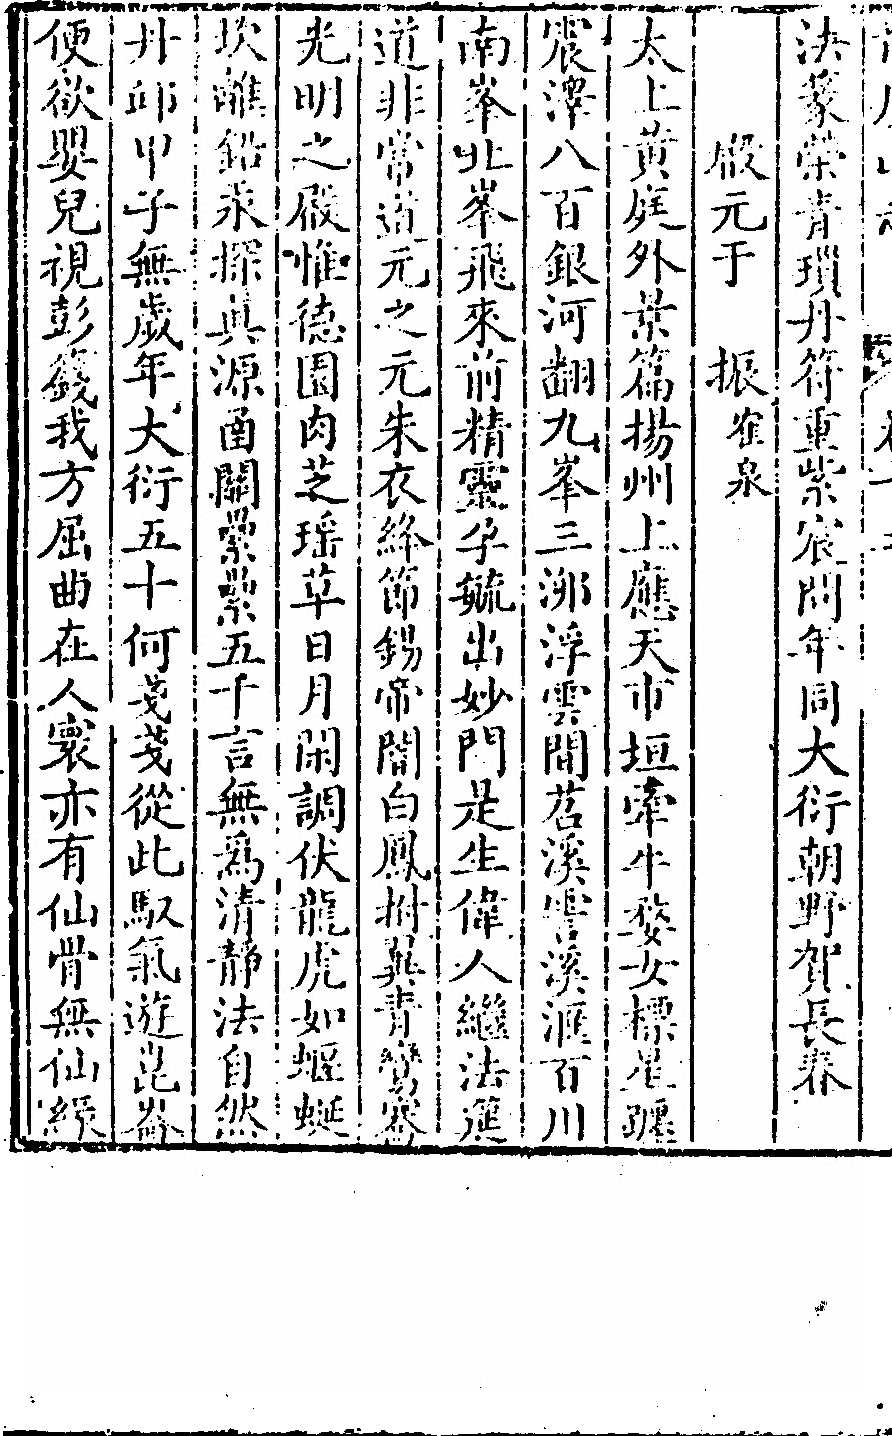 法篆榮青瑣丹符重紫宸問年同大衍朝野賀長春
殷元于　振雀泉
太上黄庭外景篇揚州上應天市垣牽牛婺女標星躔
震澤八百銀河翻九峯三泖浮雲間苕溪霅溪滙百川
南峯北峯飛來前精靈孕毓出妙門是生偉人繼法蓮
道非常道元之元朱衣絳節錫帝閽白鳳拊翼青鸞騫
光明之殿惟德園肉芝瑶草日月閑調伏龍虎如蝘蜒
坎離鉛汞探真源函關纍纍五千言無爲清靜法自然
丹邱甲子無歲年大衍五十何戔戔從此馭氣遊崑崙
便欲嬰兒視彭籛我方屈曲在人寰亦有仙骨無仙緣